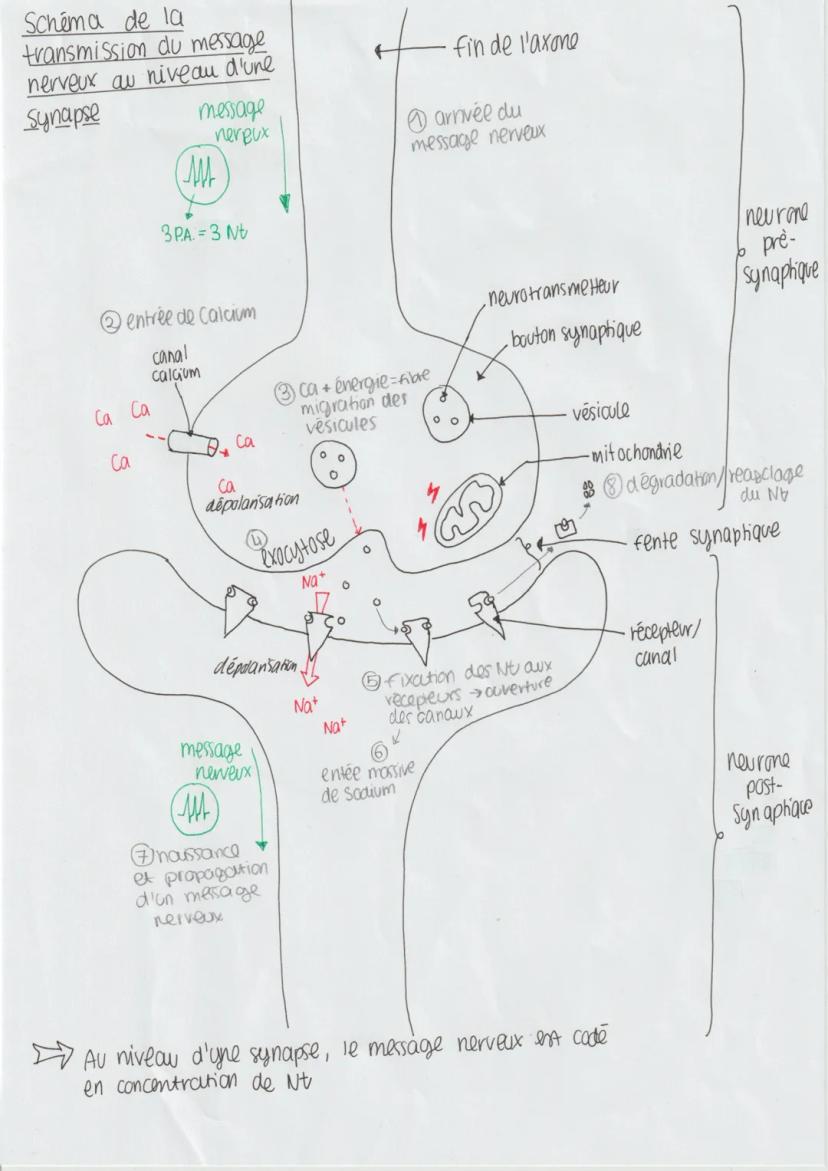 Schéma de la
transmission du message
nerveux au niveau d'une
synapse
fin de l'axone
message
nerveux
① arrivée du
message nerveux
3 P.A. = 3 Nt
neurone
pré-
synaptique
② entrée de Calcium
neurotransmetteur
bouton synaptique
canal
calcium
③ Ca + énergie = fibre
migration des
vésicules
vésicule
Ca Ca
Ca
Ca
Ca
dépolarisation
mitochondrie
⑧ dégradation/recyclage
du Nt
④ exocytose
fente synaptique
Na⁺
récepteur/
canal
dépolarisation
Na⁺
Na⁺
⑤ fixation des Nt aux
récepteurs → ouverture
des canaux
⑥
entée massive
de Sodium
message
nerveux
neurone
post-
synaptique
⑦ naissance
et propagation
d'un message
nerveux
Au niveau d'une synapse, le message nerveux est codé
en concentration de Nt